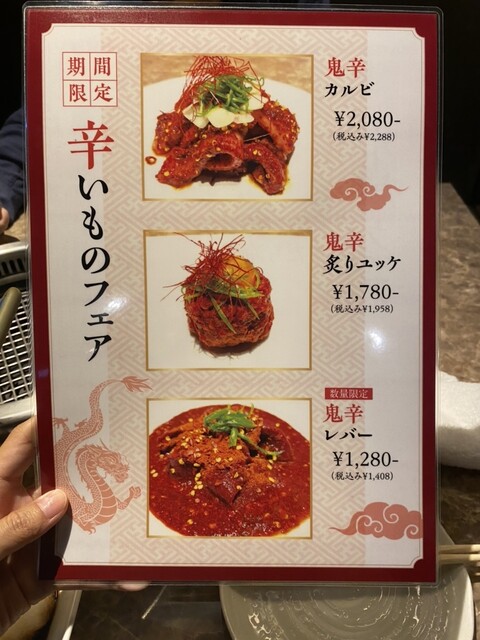 期間
限定
辛いものフェア
鬼辛
カルビ
¥2,080-
(税込み¥2,288)
鬼辛
炙りユッケ
¥1,780-
(税込み¥1,958)
数量限定
鬼辛
レバー
¥1,280-
(税込み¥1,408)